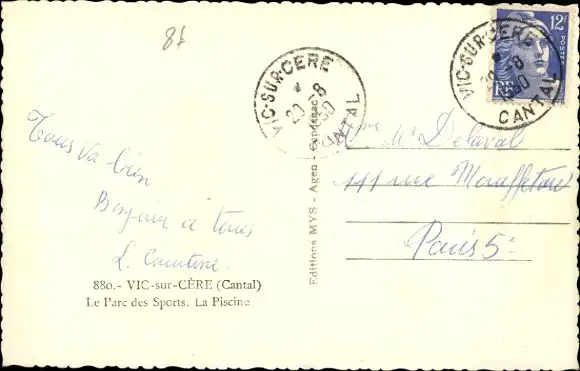 87
Tous va bien
Bonjour à tous
L.
880.- VIC-sur-CÈRE (Cantal)
Le Parc des Sports. La Piscine
Editions MYS - Agen -
VIC-SUR-CERE
*
20 -8
50
CANTAL
12F
POSTES
RF
VIC-SUR-CERE
*
20 -8
1950
CANTAL
Delaval
111 rue Mouffetard
Paris 5e